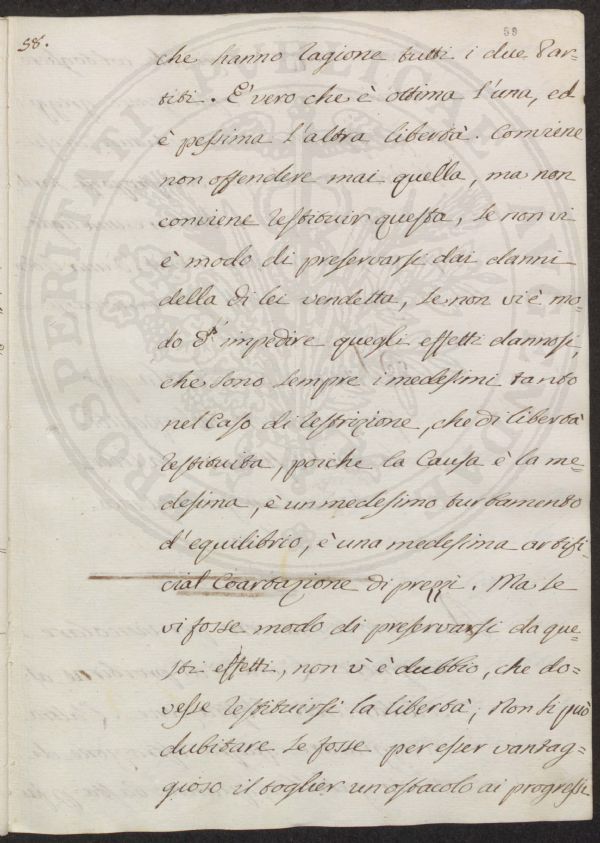 58.
59
che hanno ragione tutti i due Par=
titi. E' vero che è ottima l'una, ed
è pessima l'altra libertà. Conviene
non offendere mai quella, ma non
conviene restituir questa, se non vi
è modo di preservarsi dai danni
della di lei vendetta, se non vi è mo=
do d' impedire quegli effetti dannosi,
che sono sempre i medesimi tanto
nel Caso di restrizione, che di libertà
restituita, poiche la Causa è la me=
desima, è un medesimo turbamento
d'equilibrio, è una medesima artifi=
cial Coartazione di prezzi. Ma se
vi fosse modo di preservarsi da que=
sti effetti, non v'è dubbio, che do=
vesse restituirsi la libertà; Non si può
dubitare se fosse per esser vantag=
gioso il toglier un ostacolo ai progressi
PROSPERITATI PUBLICAE AUGENDAE